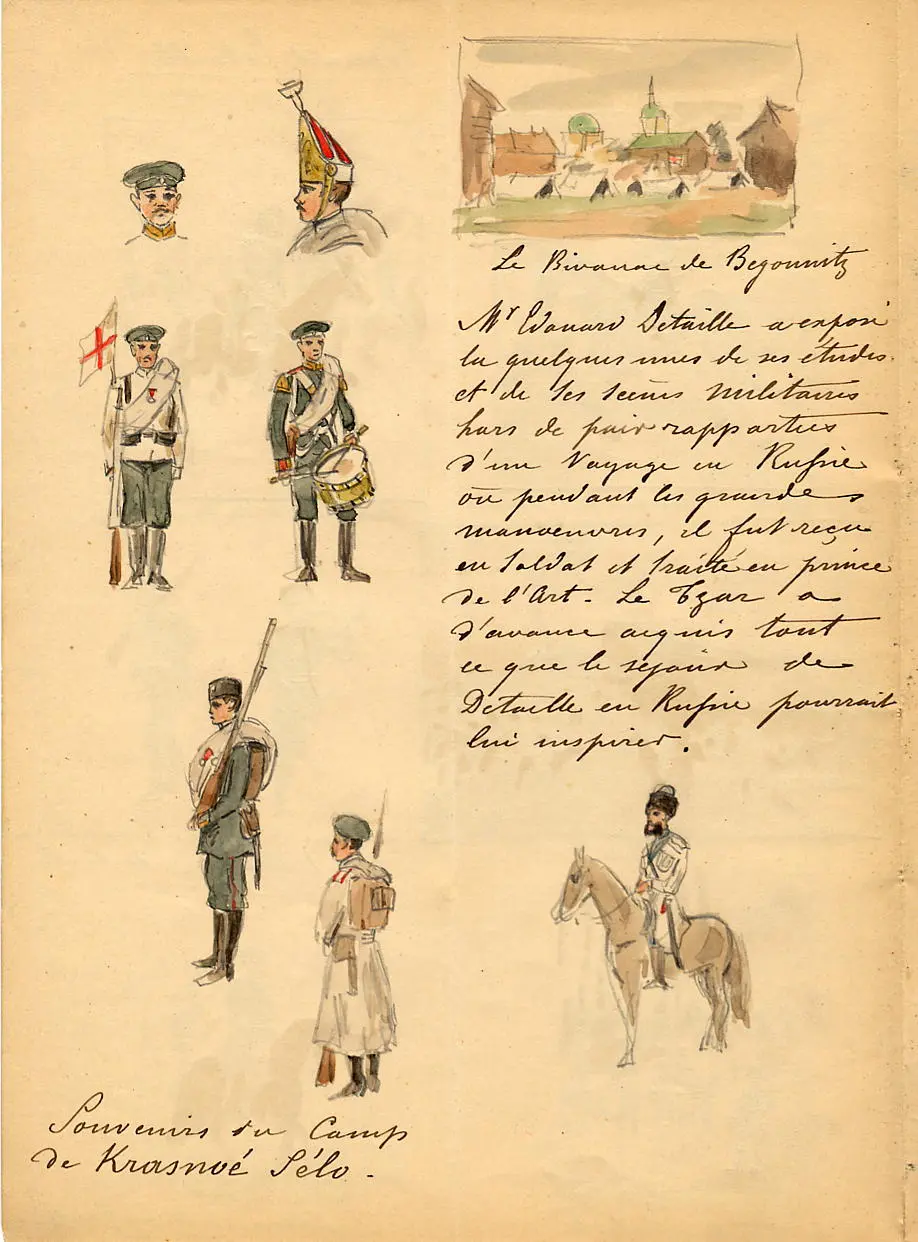 Le Bivouac de Begounitz
Mr Edouard Detaille a exposé
la quelques unes de ses études
et de ses scènes militaires
hors de pair rapportées
d'un Voyage en Russie
où pendant les grandes
manoeuvres, il fut reçu
en Soldat et traité en prince
de l'Art. Le Tzar a
d'avance acquis tout
ce que le séjour de
Detaille en Russie pourrait
lui inspirer.
Souvenirs du Camp
de Krasnoé Sélo.